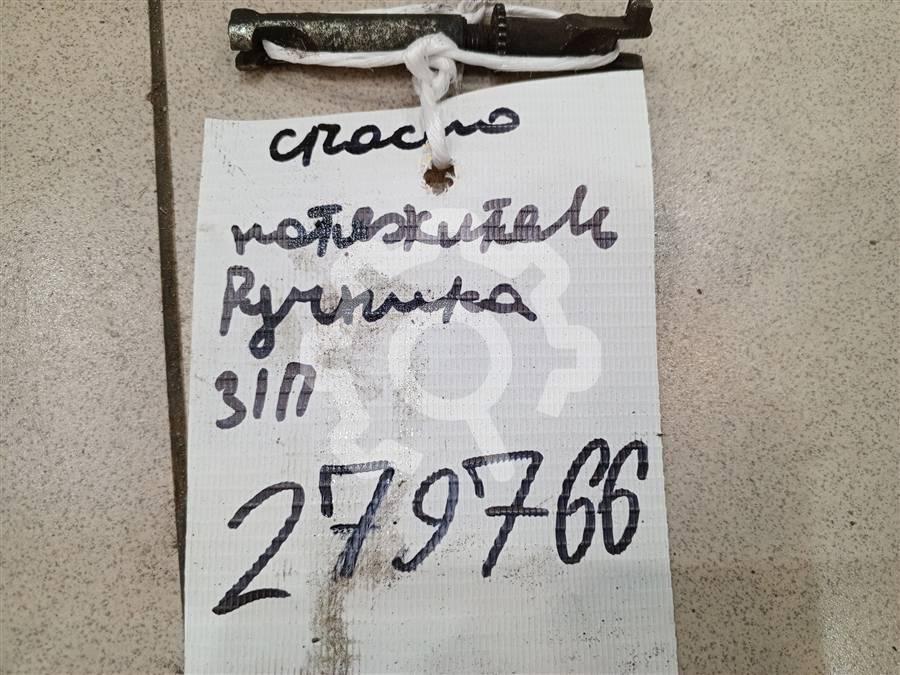 спасио
натяжитель
Ручника
З/П
279766